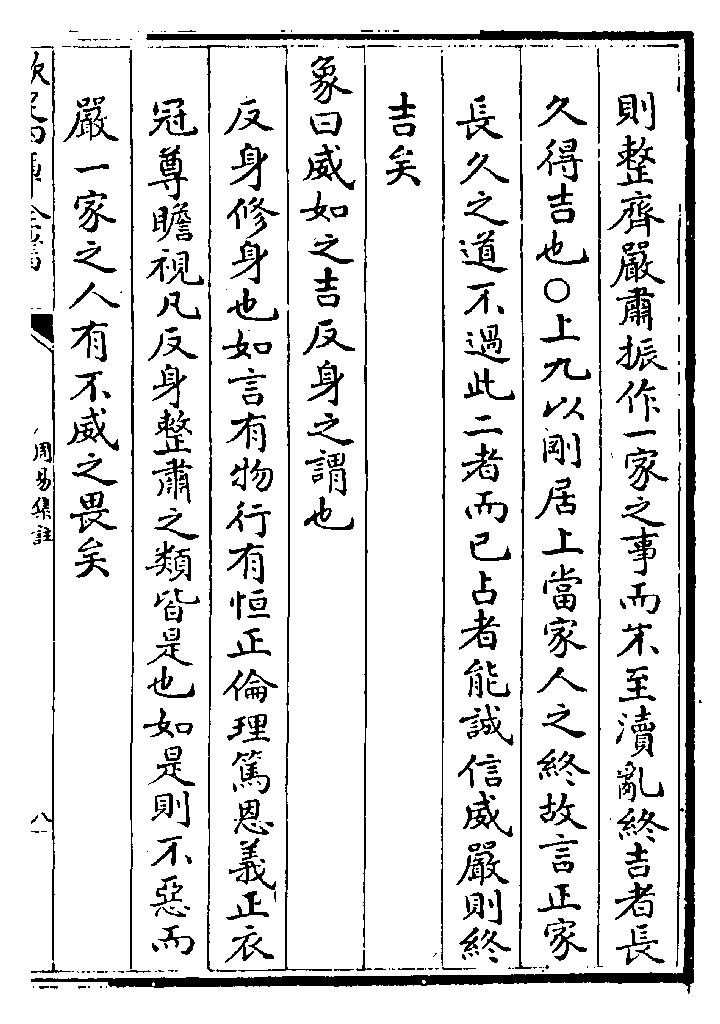 則整齊嚴肅振作一家之事而不至瀆亂終吉者長
久得吉也○上九以剛居上當家人之終故言正家
長久之道不過此二者而已占者能誠信威嚴則終
吉矣
象曰威如之吉反身之謂也
反身修身也如言有物行有恒正倫理篤恩義正衣
冠尊瞻視凡反身整肅之類皆是也如是則不惡而
嚴一家之人有不威之畏矣
周易集註